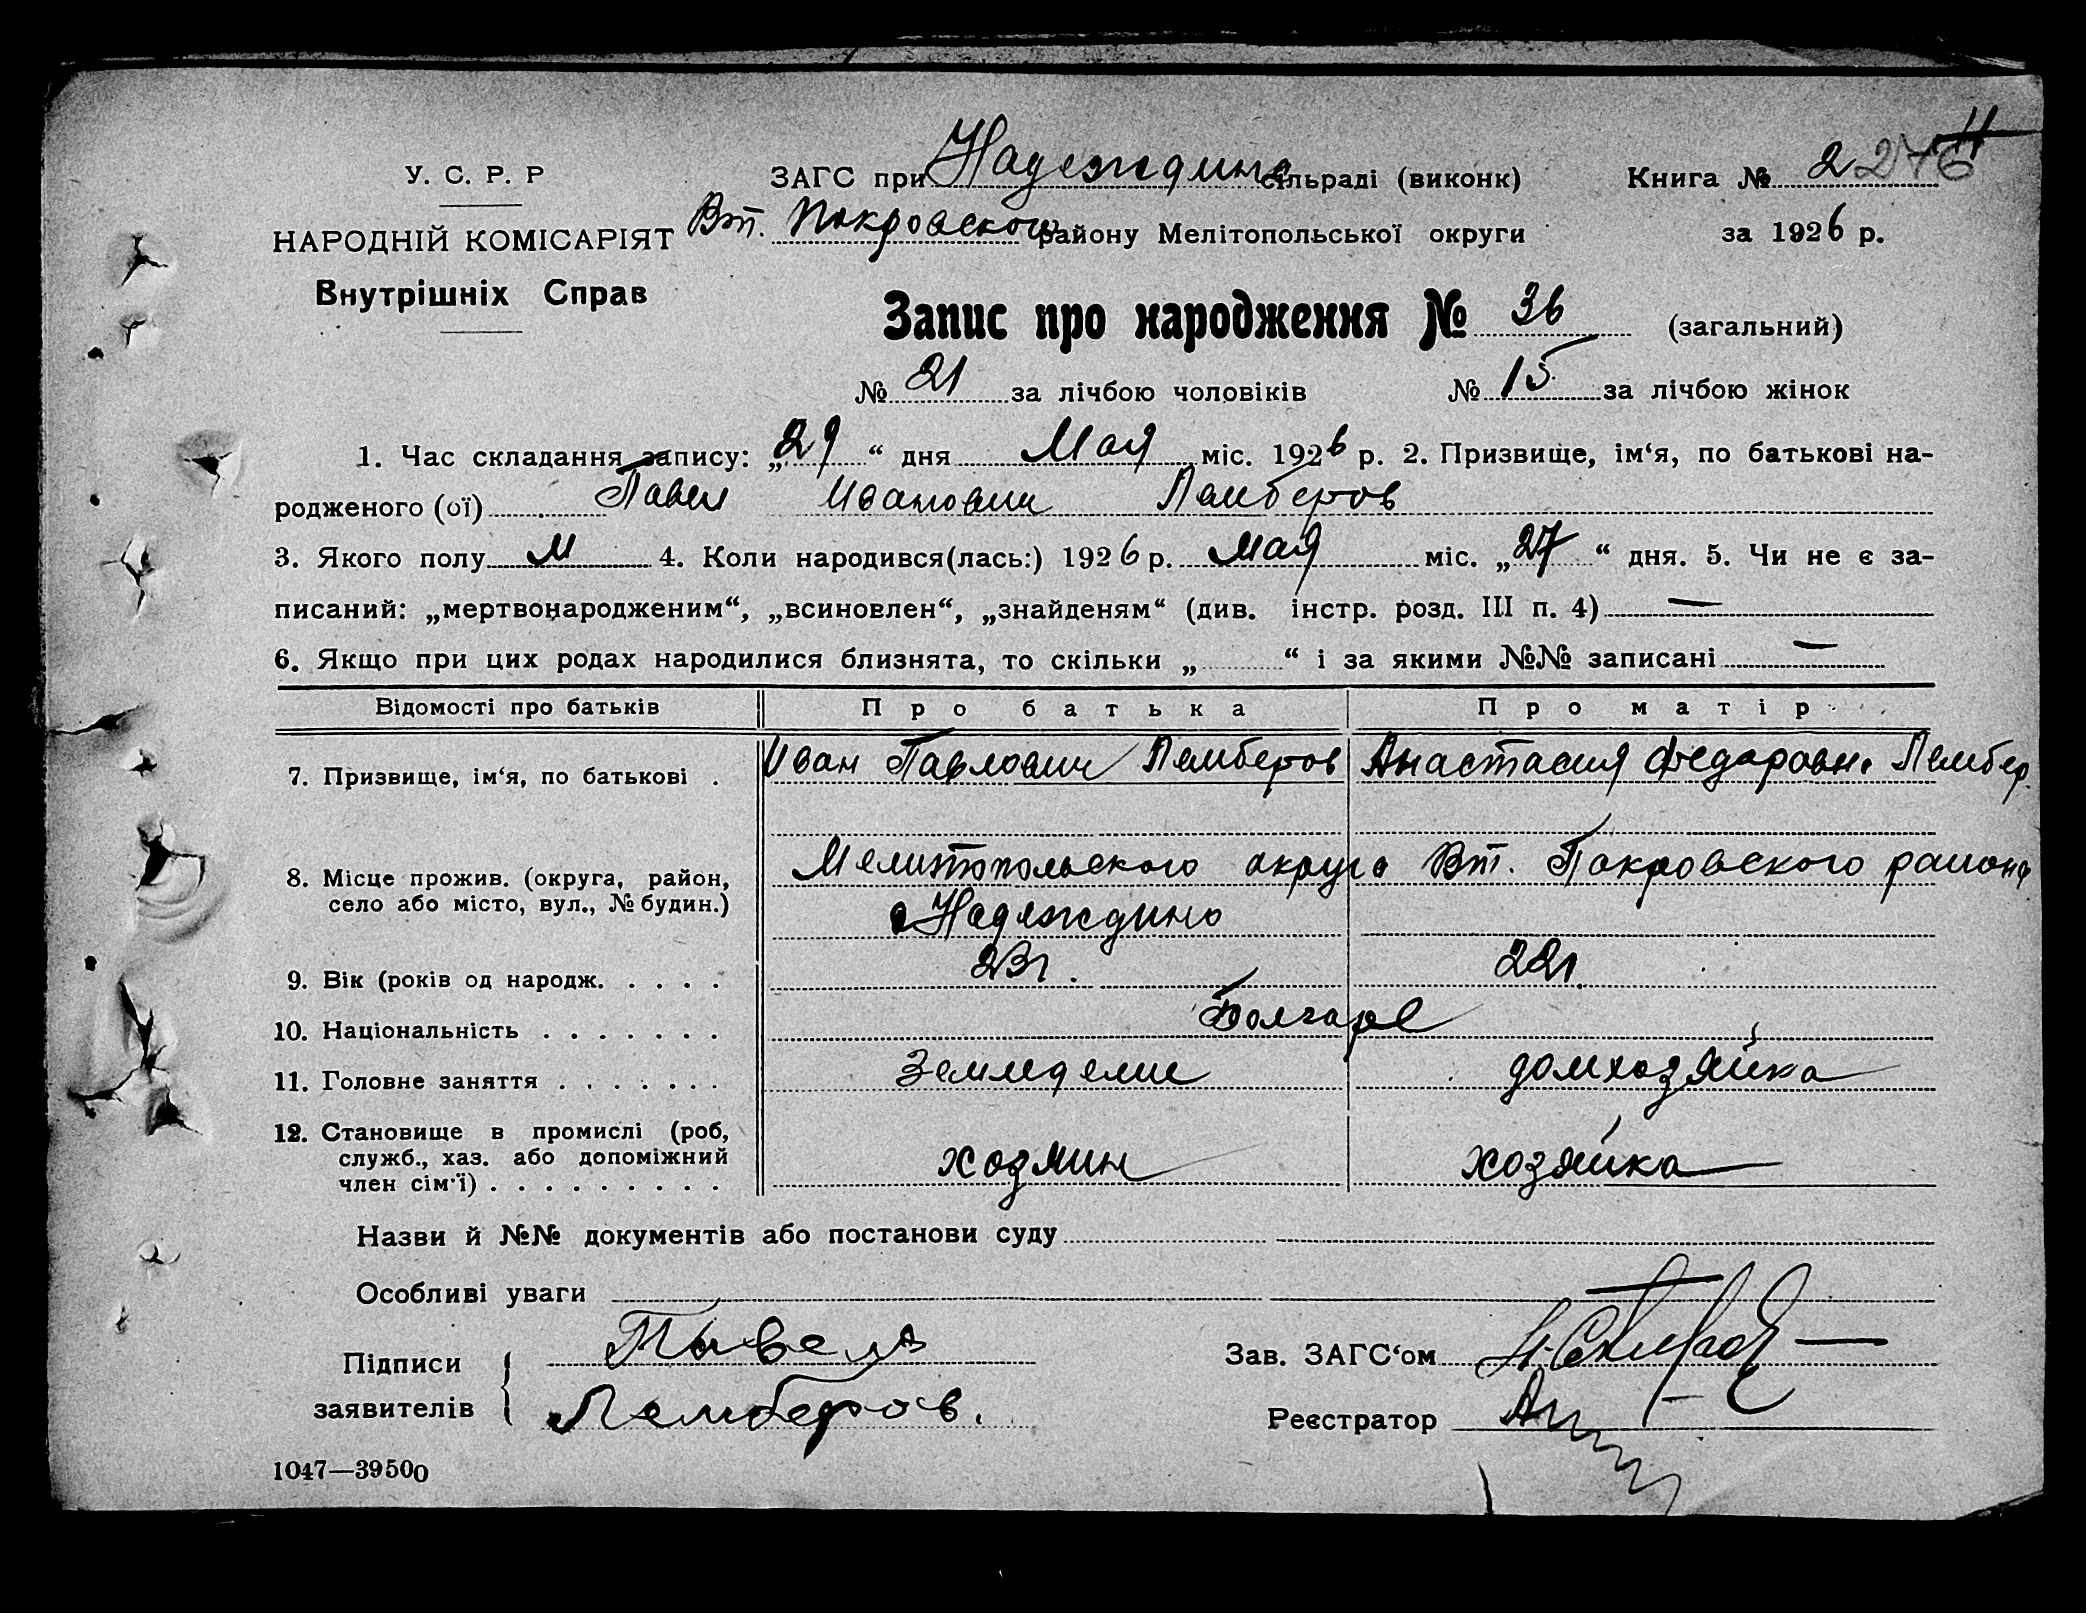 У. С. Р. Р
НАРОДНІЙ КОМІСАРІЯТ
Внутрішніх Справ
ЗАГС при Надеждино сільраді (виконк)
Вт. Покровского району Мелітопольської округи
Книга № 2 276 11
за 1926 р.
Запис про народження № 36 (загальний)
№ 21 за лічбою чоловіків № 15 за лічбою жінок
1. Час складання запису: „29“ дня Мая міс. 1926 р. 2. Призвище, ім‘я, по батькові на-
родженого (ої) Павел Иванович Лемберов
3. Якого полу М 4. Коли народився(лась:) 1926 р. Мая міс. „27“ дня. 5. Чи не є за-
писаний: „мертвонародженим“, „всиновлен“, „знайденям“ (див. інстр. розд. III п. 4) —
6. Якщо при цих родах народилися близнята, то скільки „ “ і за якими №№ записані —
Відомості про батьків Про батька Про матір
7. Призвище, ім‘я, по батькові . Иван Павлович Лемберов Анастасия Федаровн. Лембер.
8. Місце прожив. (округа, район, Мелитопольского округа Вт. Покровского района
село або місто, вул., № будин.) Надеждино
9. Вік (років од народж. . . . . 23 г. 22 г.
10. Національність . . . . . . . Болгаре
11. Головне заняття . . . . . . . Земледелие домхозяйка
12. Становище в промислі (роб,
служб., хаз. або допоміжний хозяин хозяйка
член сім‘ї) . . . . . . . . .
Назви й №№ документів або постанови суду
Особливі уваги
Підписи
заявителів
Лемберов.
Зав. ЗАГС‘ом
Реєстратор
1047—39500